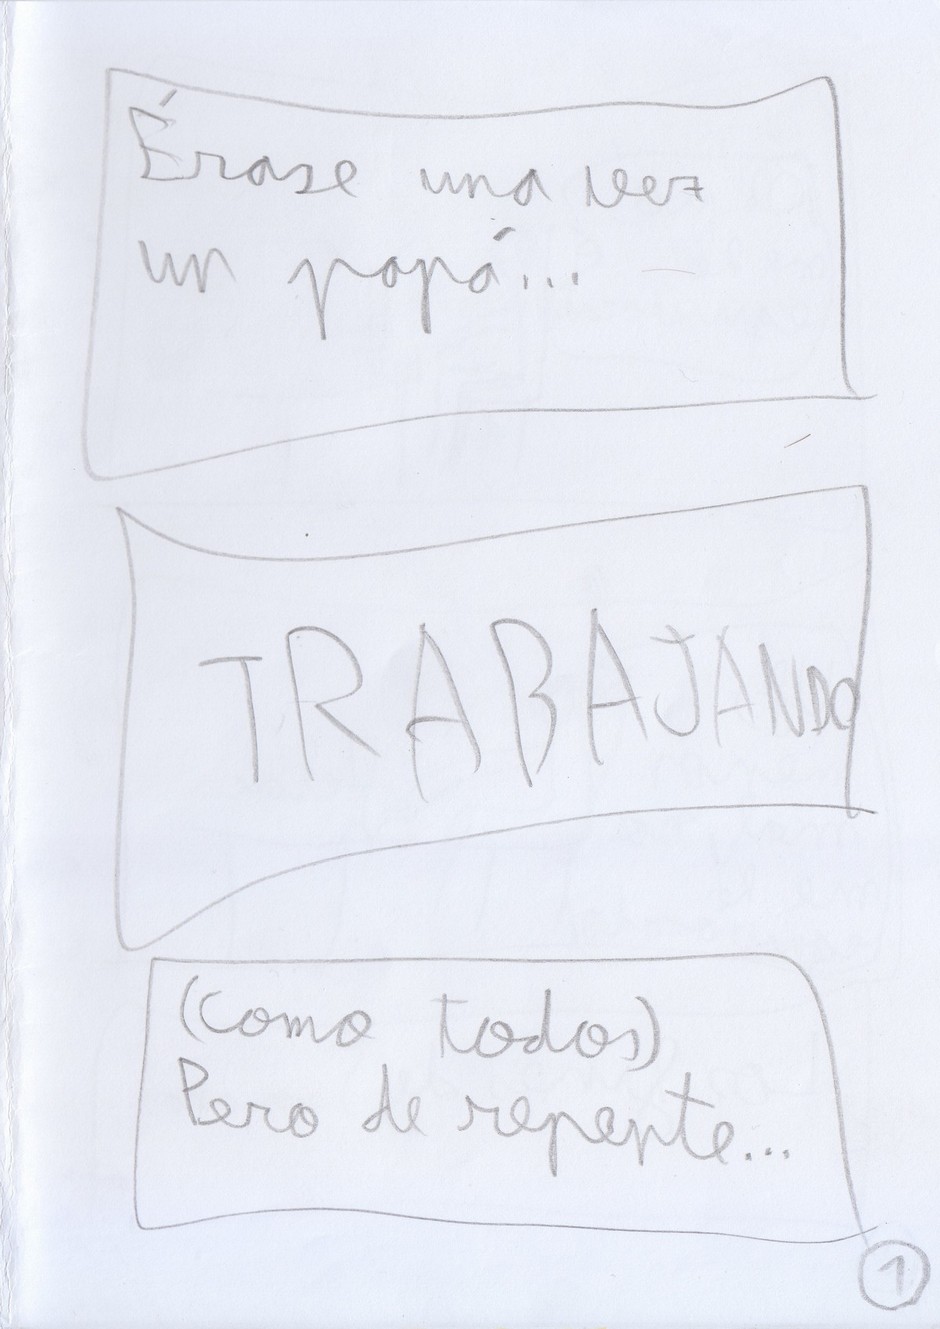 Érase una vez
un papá...
TRABAJANDO
(como todos)
Pero de repente...
1